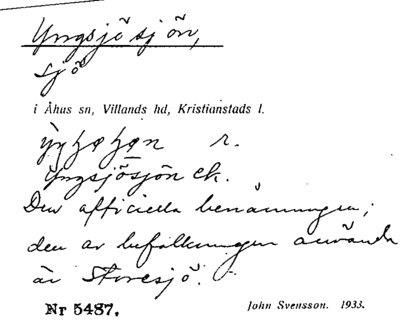 Yngsjösjön,
sjö
i Åhus sn, Villands hd, Kristianstads l.
r.
Yngsjösjön ek.
Den officiella benämningen;
den av befolkningen använda
är Storesjö.
Nr 5487.
John Svensson. 1933.